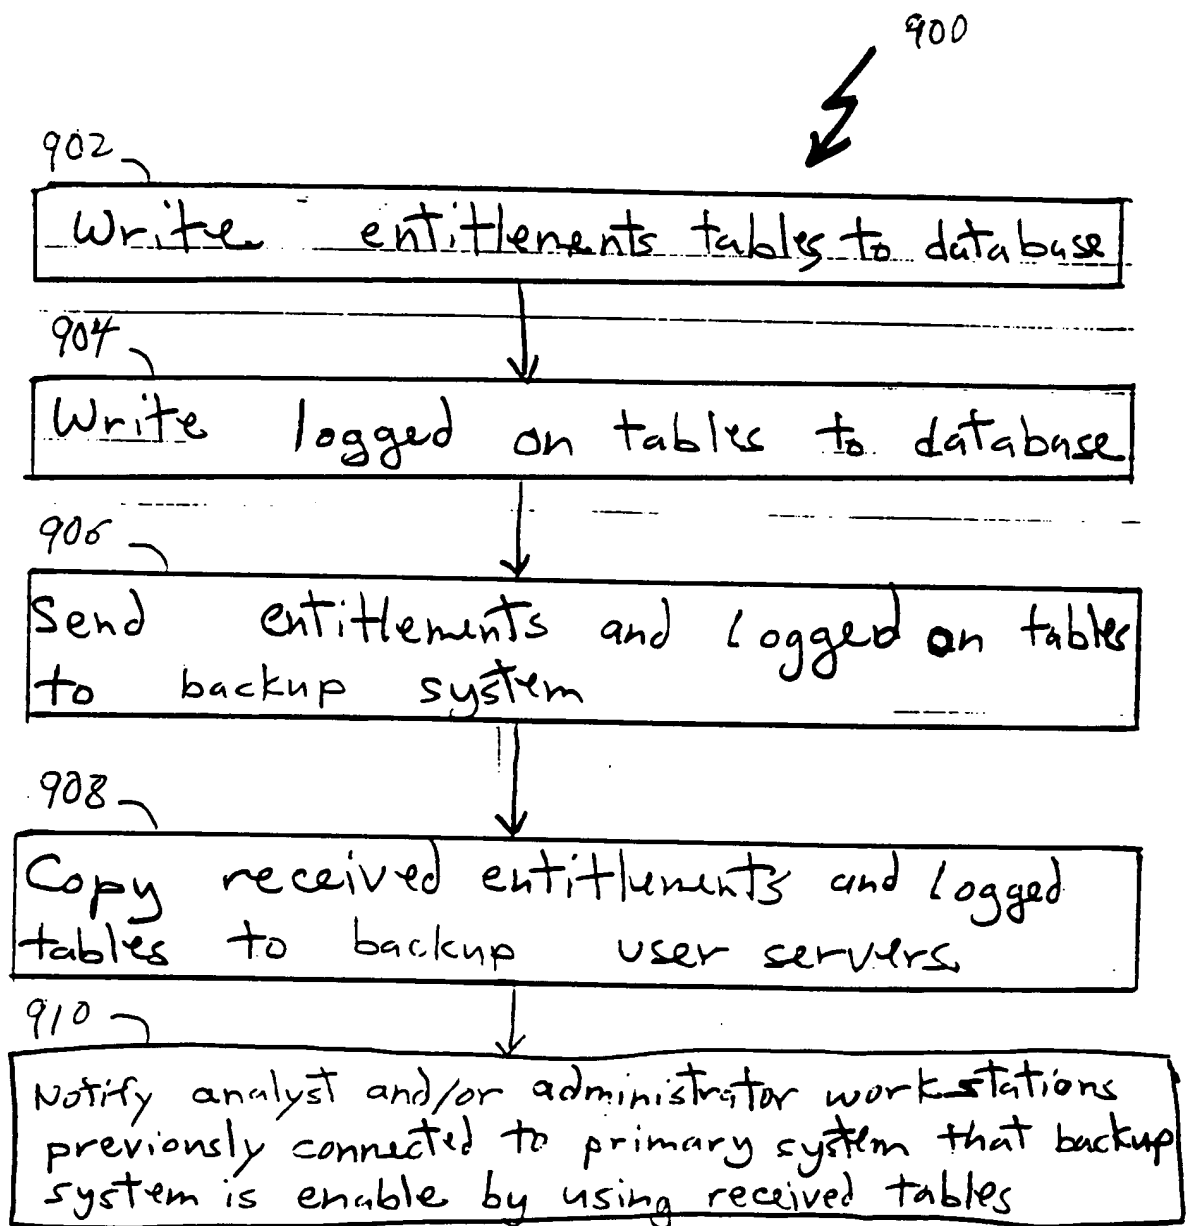 900
902
Write entitlements tables to database
904
Write logged on tables to database
906
Send entitlements and logged on tables
to backup system
908
Copy received entitlements and logged
tables to backup user servers.
910
Notify analyst and/or administrator workstations
previously connected to primary system that backup
system is enable by using received tables